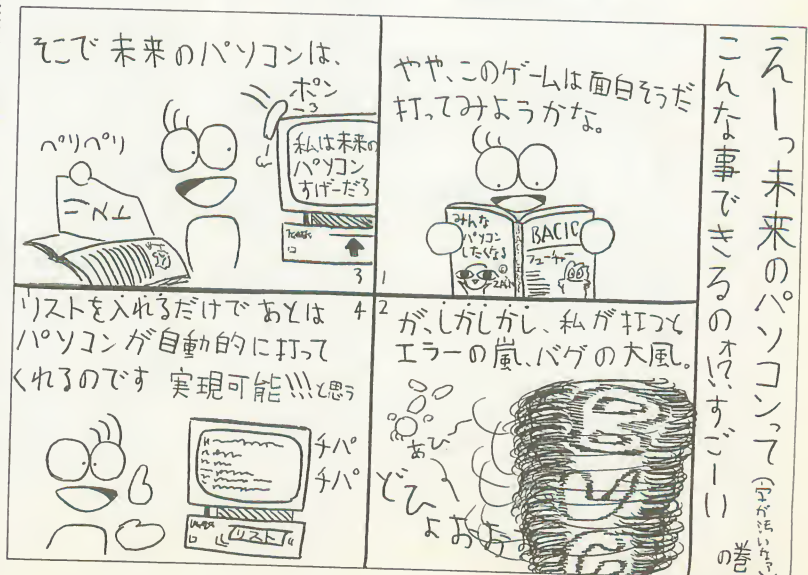 えーっ未来のパソコンって
こんな事できるのォ!?すごーい
(字が汚いなァ)
の巻
やや、このゲームは面白そうだ
打ってみようかな。
みんな
パソコン
したくなる
BACIC
フューチャー
1
2
が、しかしかし、私が打つと
エラーの嵐、バグの大風。
あひ〜
どひ
ょおぉ
そこで未来のパソコンは、
ポン
ペリペリ
私は未来の
パソコン
すげーだろ
3
4
リストを入れるだけであとは
パソコンが自動的に打って
くれるのです 実現可能!!!と思う
チパ
チパ
リスト